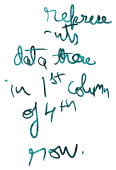 refere
-nts
data there
in 1st column
of 4th
row.